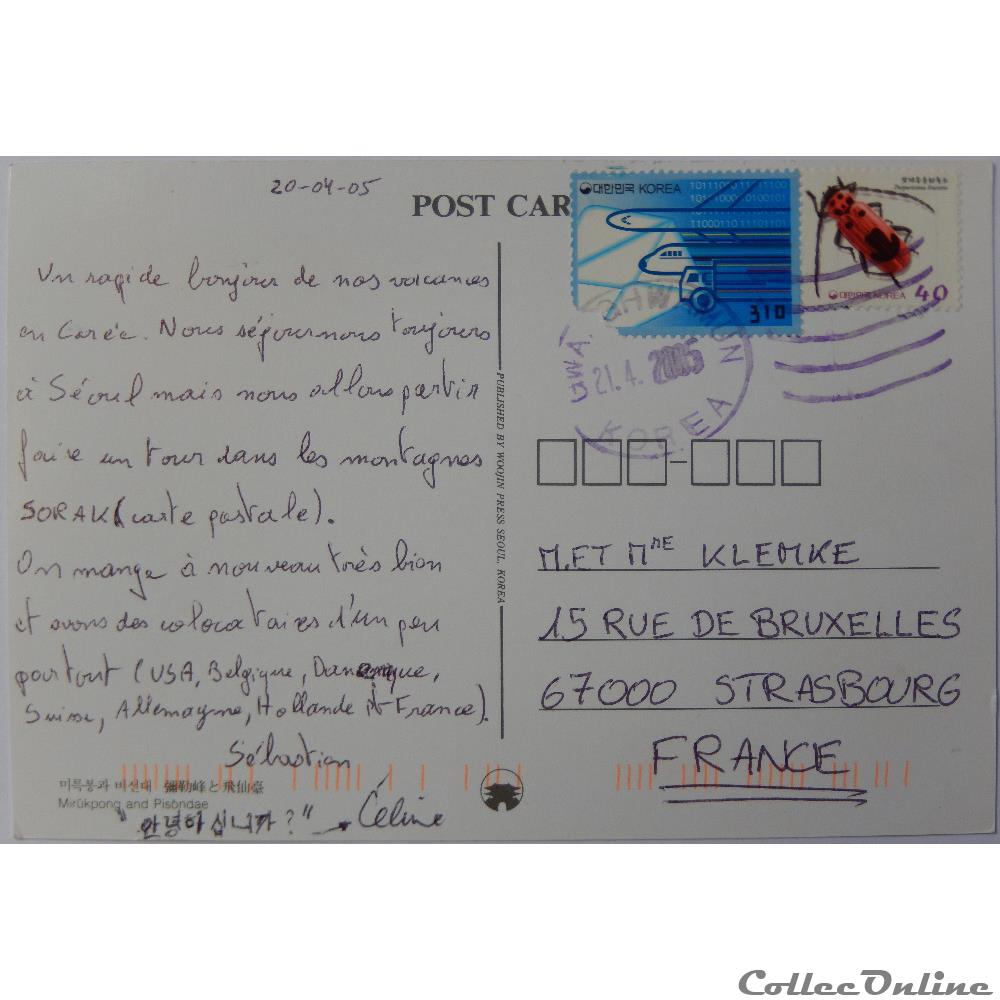 20-04-05
POST CAR
대한민국 KOREA
10111000111100
10110001010010 1
11000110111010 1
310
대한민국 KOREA
40
GWA
21.4.2005
KOREA
Un rapide bonjour de nos vacances
en Corée. Nous séjournons toujours
à Séoul mais nous allons partir
faire un tour dans les montagnes
SORAK (carte postale).
On mange à nouveau très bien
et avons des colocataires d'un peu
partout (USA, Belgique, Danemarque,
Suisse, Allemagne, Hollande et France).
Sébastien
"안녕하십니까?" → Celine
PUBLISHED BY WOOJIN PRESS SEOUL, KOREA
M. ET Mme KLEMKE
15 RUE DE BRUXELLES
67000 STRASBOURG
FRANCE
미륵봉과 비선대 彌勒峰と飛仙臺
Mirŭkpong and Pisŏndae
CollecOnline